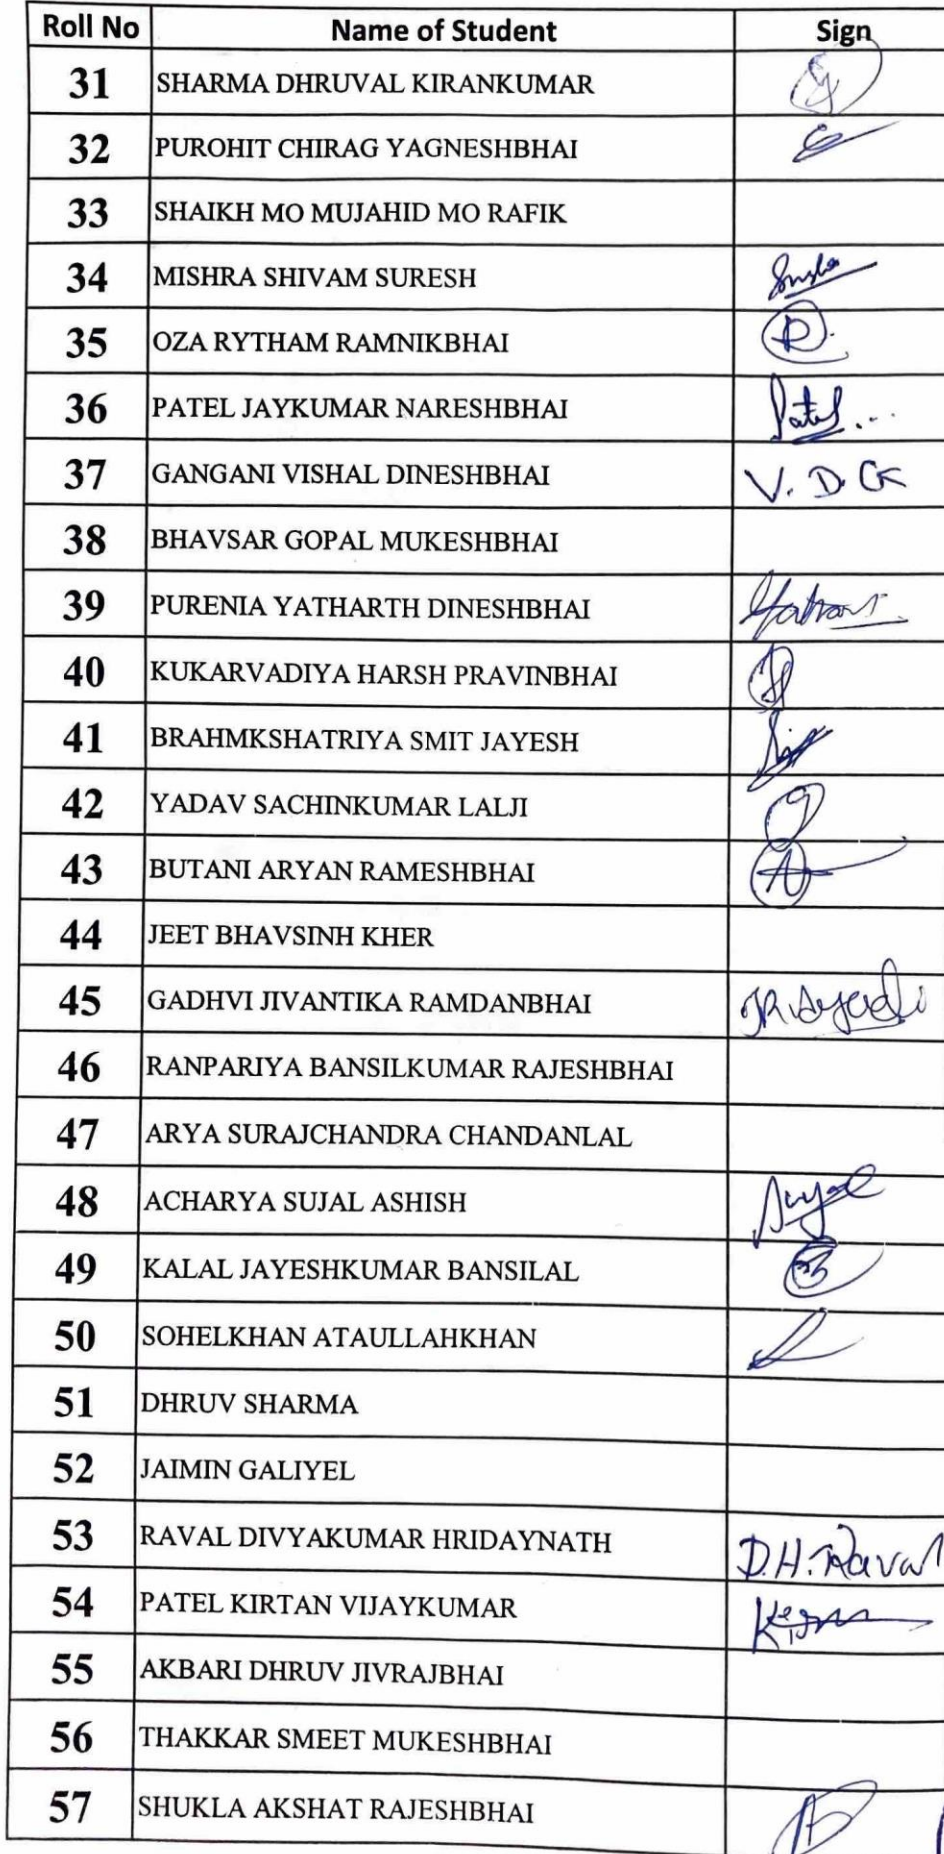 Roll No Name of Student Sign
31 SHARMA DHRUVAL KIRANKUMAR
32 PUROHIT CHIRAG YAGNESHBHAI
33 SHAIKH MO MUJAHID MO RAFIK
34 MISHRA SHIVAM SURESH
35 OZA RYTHAM RAMNIKBHAI
36 PATEL JAYKUMAR NARESHBHAI Patel...
37 GANGANI VISHAL DINESHBHAI V. D. G
38 BHAVSAR GOPAL MUKESHBHAI
39 PURENIA YATHARTH DINESHBHAI
40 KUKARVADIYA HARSH PRAVINBHAI
41 BRAHMKSHATRIYA SMIT JAYESH
42 YADAV SACHINKUMAR LALJI
43 BUTANI ARYAN RAMESHBHAI A
44 JEET BHAVSINH KHER
45 GADHVI JIVANTIKA RAMDANBHAI
46 RANPARIYA BANSILKUMAR RAJESHBHAI
47 ARYA SURAJCHANDRA CHANDANLAL
48 ACHARYA SUJAL ASHISH Sujal
49 KALAL JAYESHKUMAR BANSILAL
50 SOHELKHAN ATAULLAHKHAN
51 DHRUV SHARMA
52 JAIMIN GALIYEL
53 RAVAL DIVYAKUMAR HRIDAYNATH D.H. Raval
54 PATEL KIRTAN VIJAYKUMAR
55 AKBARI DHRUV JIVRAJBHAI
56 THAKKAR SMEET MUKESHBHAI
57 SHUKLA AKSHAT RAJESHBHAI